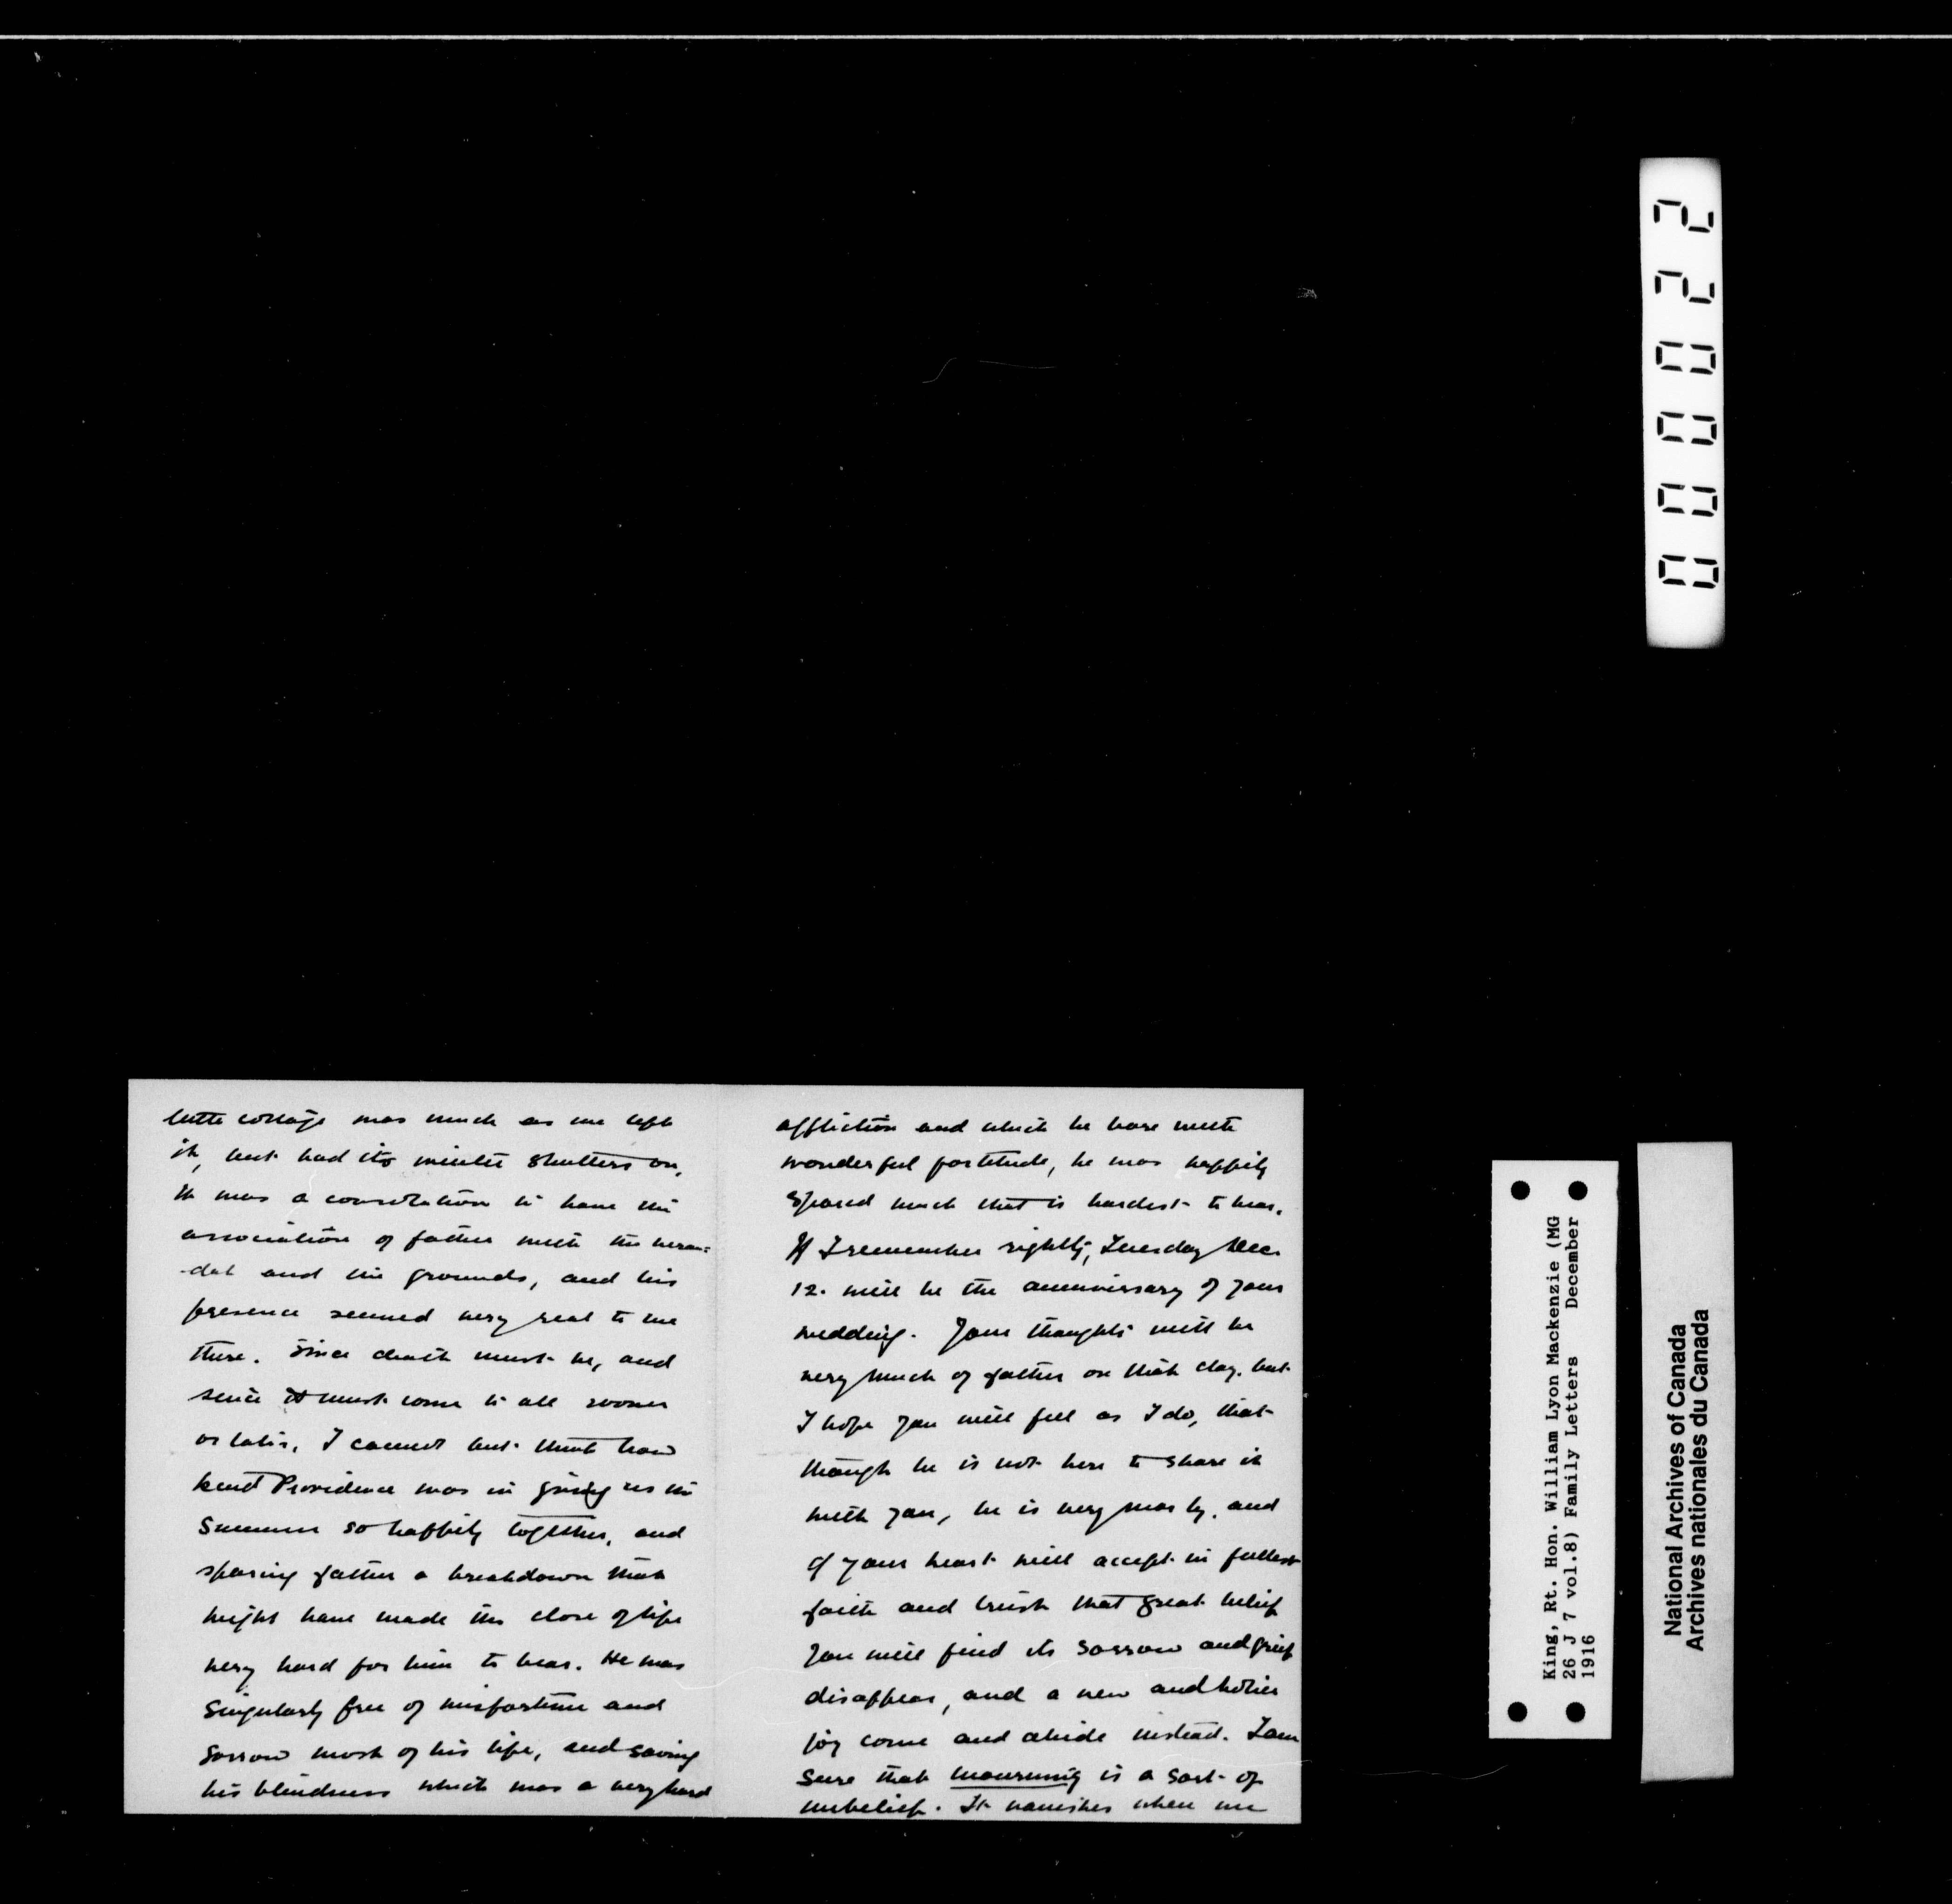 little cottage was much as we left
it, but had its winter shutters on,
It was a consolation to have the
association of father with the veran-
-dah and the grounds, and his
presence seemed very real to me
there. Since death must be, and
since it must come to all sooner
or later, I cannot but think how
kind Providence was in giving us the
Summer so happily together, and
sparing father a breakdown that
might have made the close of life
very hard for him to bear. He was
singularly free of misfortune and
sorrow most of his life, and saving
his blindness which was a very hard
affliction and which he bore with
wonderful fortitude, he was happily
spared much that is hardest to bear.
If I remember rightly, Tuesday Dec.
12. will be the anniversary of your
wedding. Your thoughts will be
very much of father on that day. but
I hope you will feel as I do, that
though he is not here to share it
with you, he is very near by, and
if your heart will accept in fullest
faith and trust that great belief
you will find its sorrow and grief
disappear, and a new and holier
joy come and abide instead. I am
sure that mourning is a sort of
unbelief. It vanishes when we
000022
King, Rt. Hon. William Lyon Mackenzie (MG
26 J 7 vol.8) Family Letters December
1916
National Archives of Canada
Archives nationales du Canada